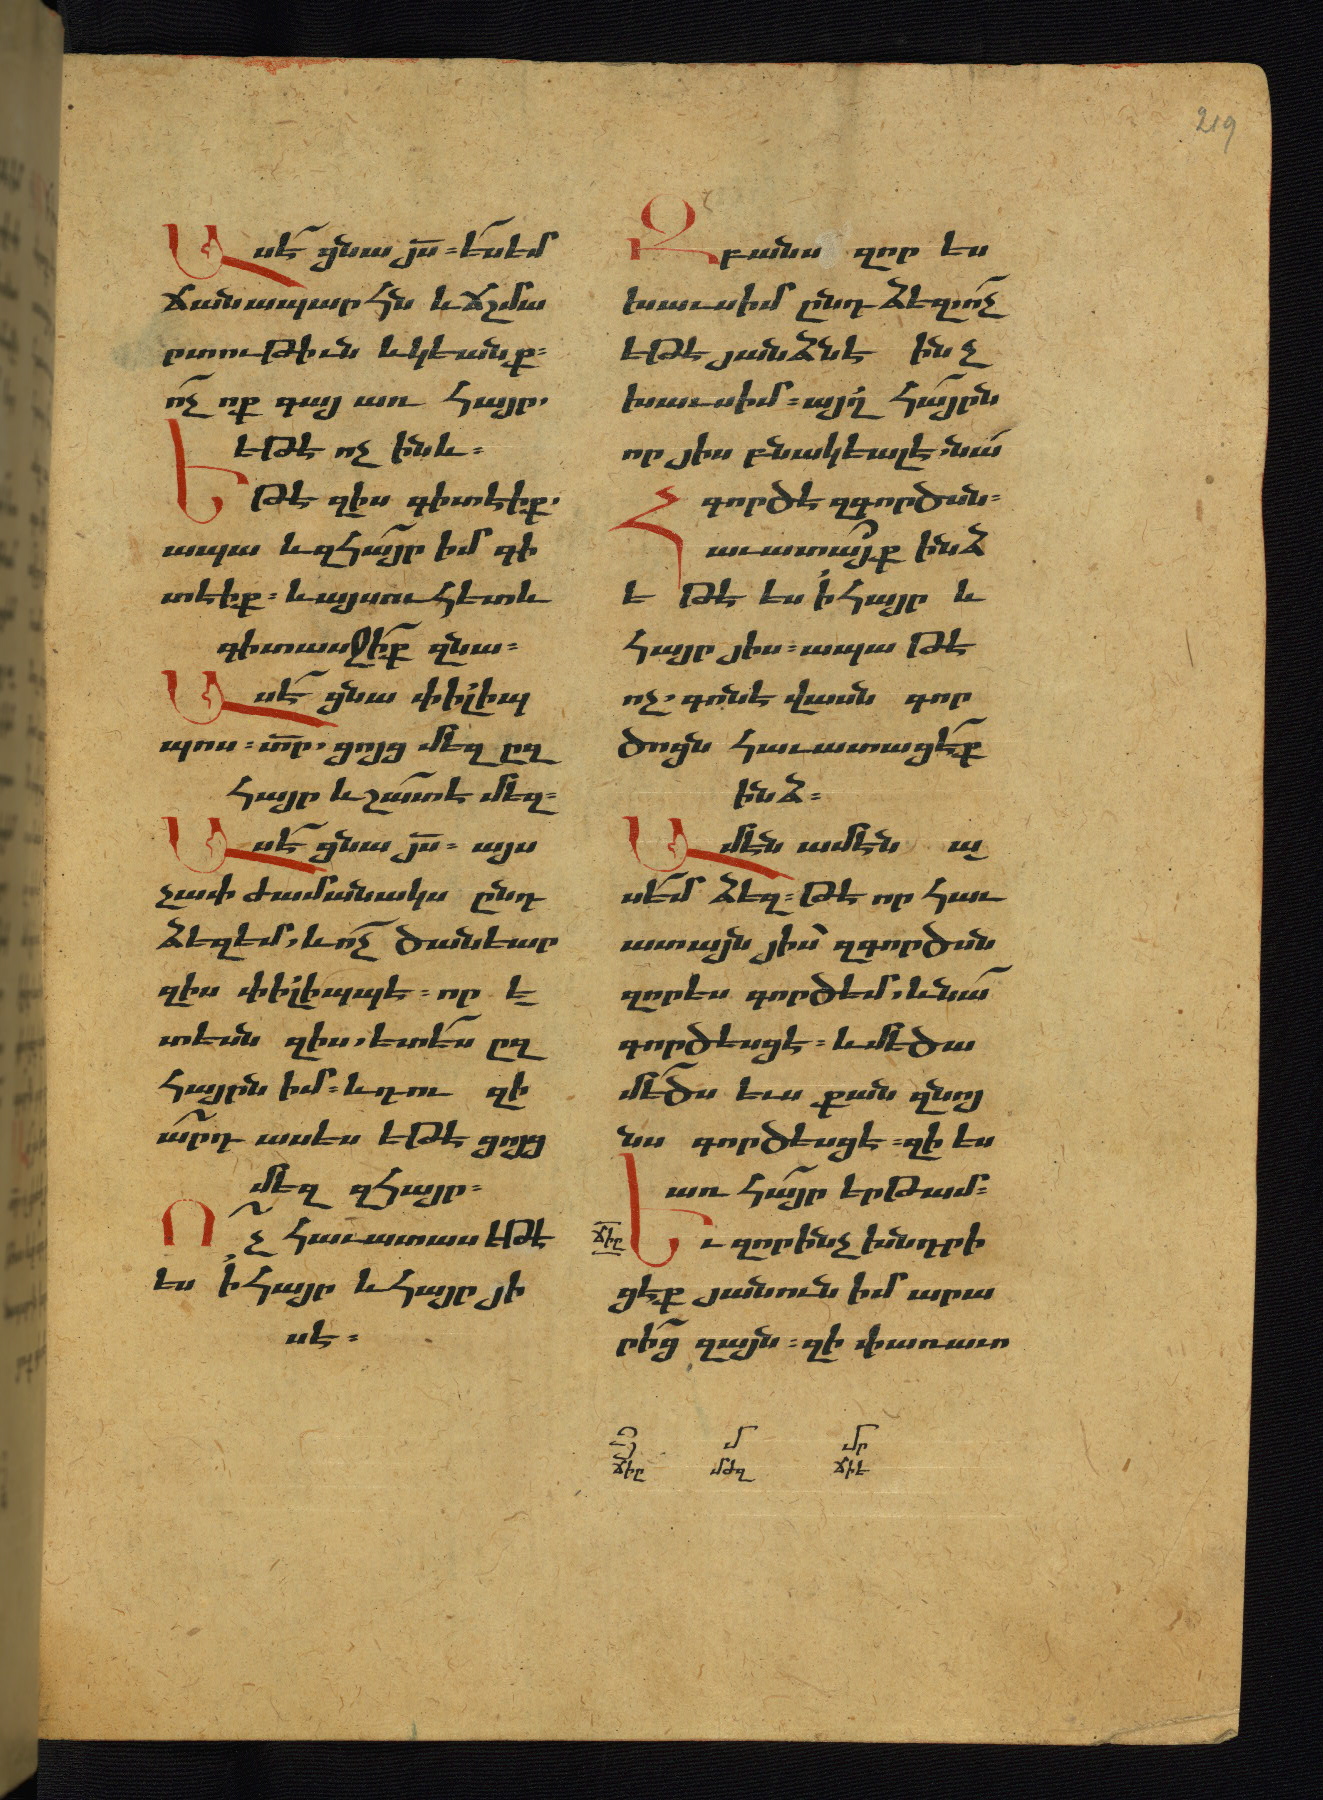 219
Ասէ ցնա յս. ես եմ
ճանապարհն և ճշմա
րտութիւն և կեանք.
ոչ ոք գայ առ հայր.
եթէ ոչ ինև.
Եթէ զիս գիտէիք.
ապա և զհայր իմ գի
տէիք. և այսուհետև
գիտասջիք զնա.
Ասէ ցնա փիլիպ
պոս. տր. ցոյց մեզ ըզ
հայր և շատ է մեզ.
Ասէ ցնա յս. այս
չափ ժամանակս ընդ
ձեզ եմ. և ոչ ծանեար
զիս փիլիպպէ. որ ե
տեսն զիս. ետես ըզ
հայրն իմ. և դու զի
արդ ասես եթէ ցոյց
մեզ զհայր.
Ոչ հաւատաս եթէ
ես ի հայր և հայր յի
ս է.
Զբանս զոր ես
խաւսիմ ընդ ձեզ. ոչ
եթէ յանձնէ ինչ
խաւսիմ. այղ հայրն
որ յիս բնակեալ է. նա
գործէ զգործսն.
Հաւատայք ինձ
եթէ ես ի հայր և
հայր յիս. ապա թէ
ոչ. գոնէ վասն գոր
ծոցն հաւատացէք
ինձ.
Ամեն ամեն ա
սեմ ձեզ. թէ որ հաւ
ատայն յիս զգործսն
զոր ես գործեմ. և նա
գործեսցէ. և մեծա
մեծս ևս քան զնոյ
նս գործեսցէ. զի ես
առ հայր երթամ.
ճիը Եւ զոր ինչ խնդրի
ցէք յանուն իմ արա
րից զայն. զի փառաւո
Յ մ մր
ճիը մթզ ճիէ